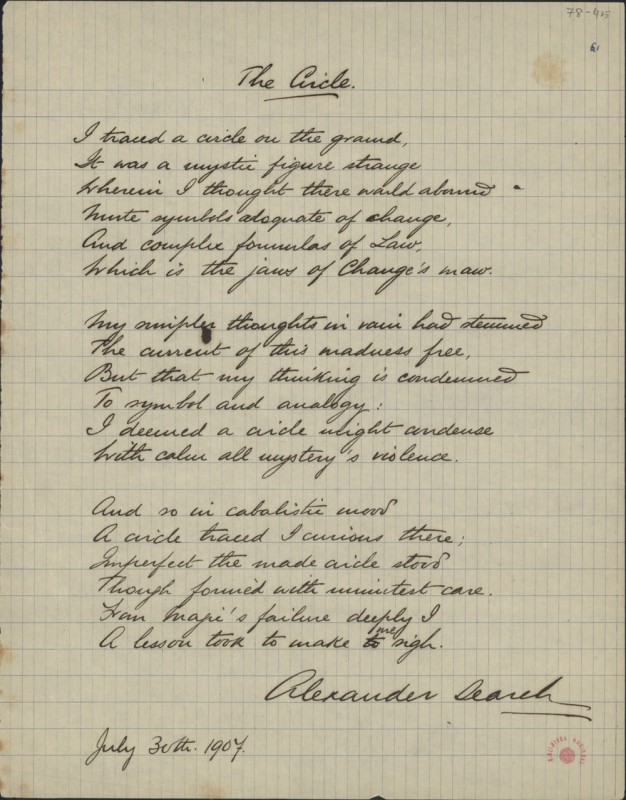 78-45
61
The Circle.
I traced a circle on the ground,
It was a mystic figure strange
Wherein I thought there would abound
Mute symbols adequate of change,
And complex formulas of Law,
Which is the jaws of Change's maw.
My simpler thoughts in vain had stemmed
The current of this madness free,
But that my thinking is condemned
To symbol and analogy:
I deemed a circle might condense
With calm all mystery's violence.
And so in cabalistic mood
A circle traced I curious there;
Imperfect the made circle stood
Though formèd with minutest care.
From Magic's failure deeply I
A lesson took to make me sigh.
Alexander Search
July 30th. 1907.
BIBLIOTECA NACIONAL